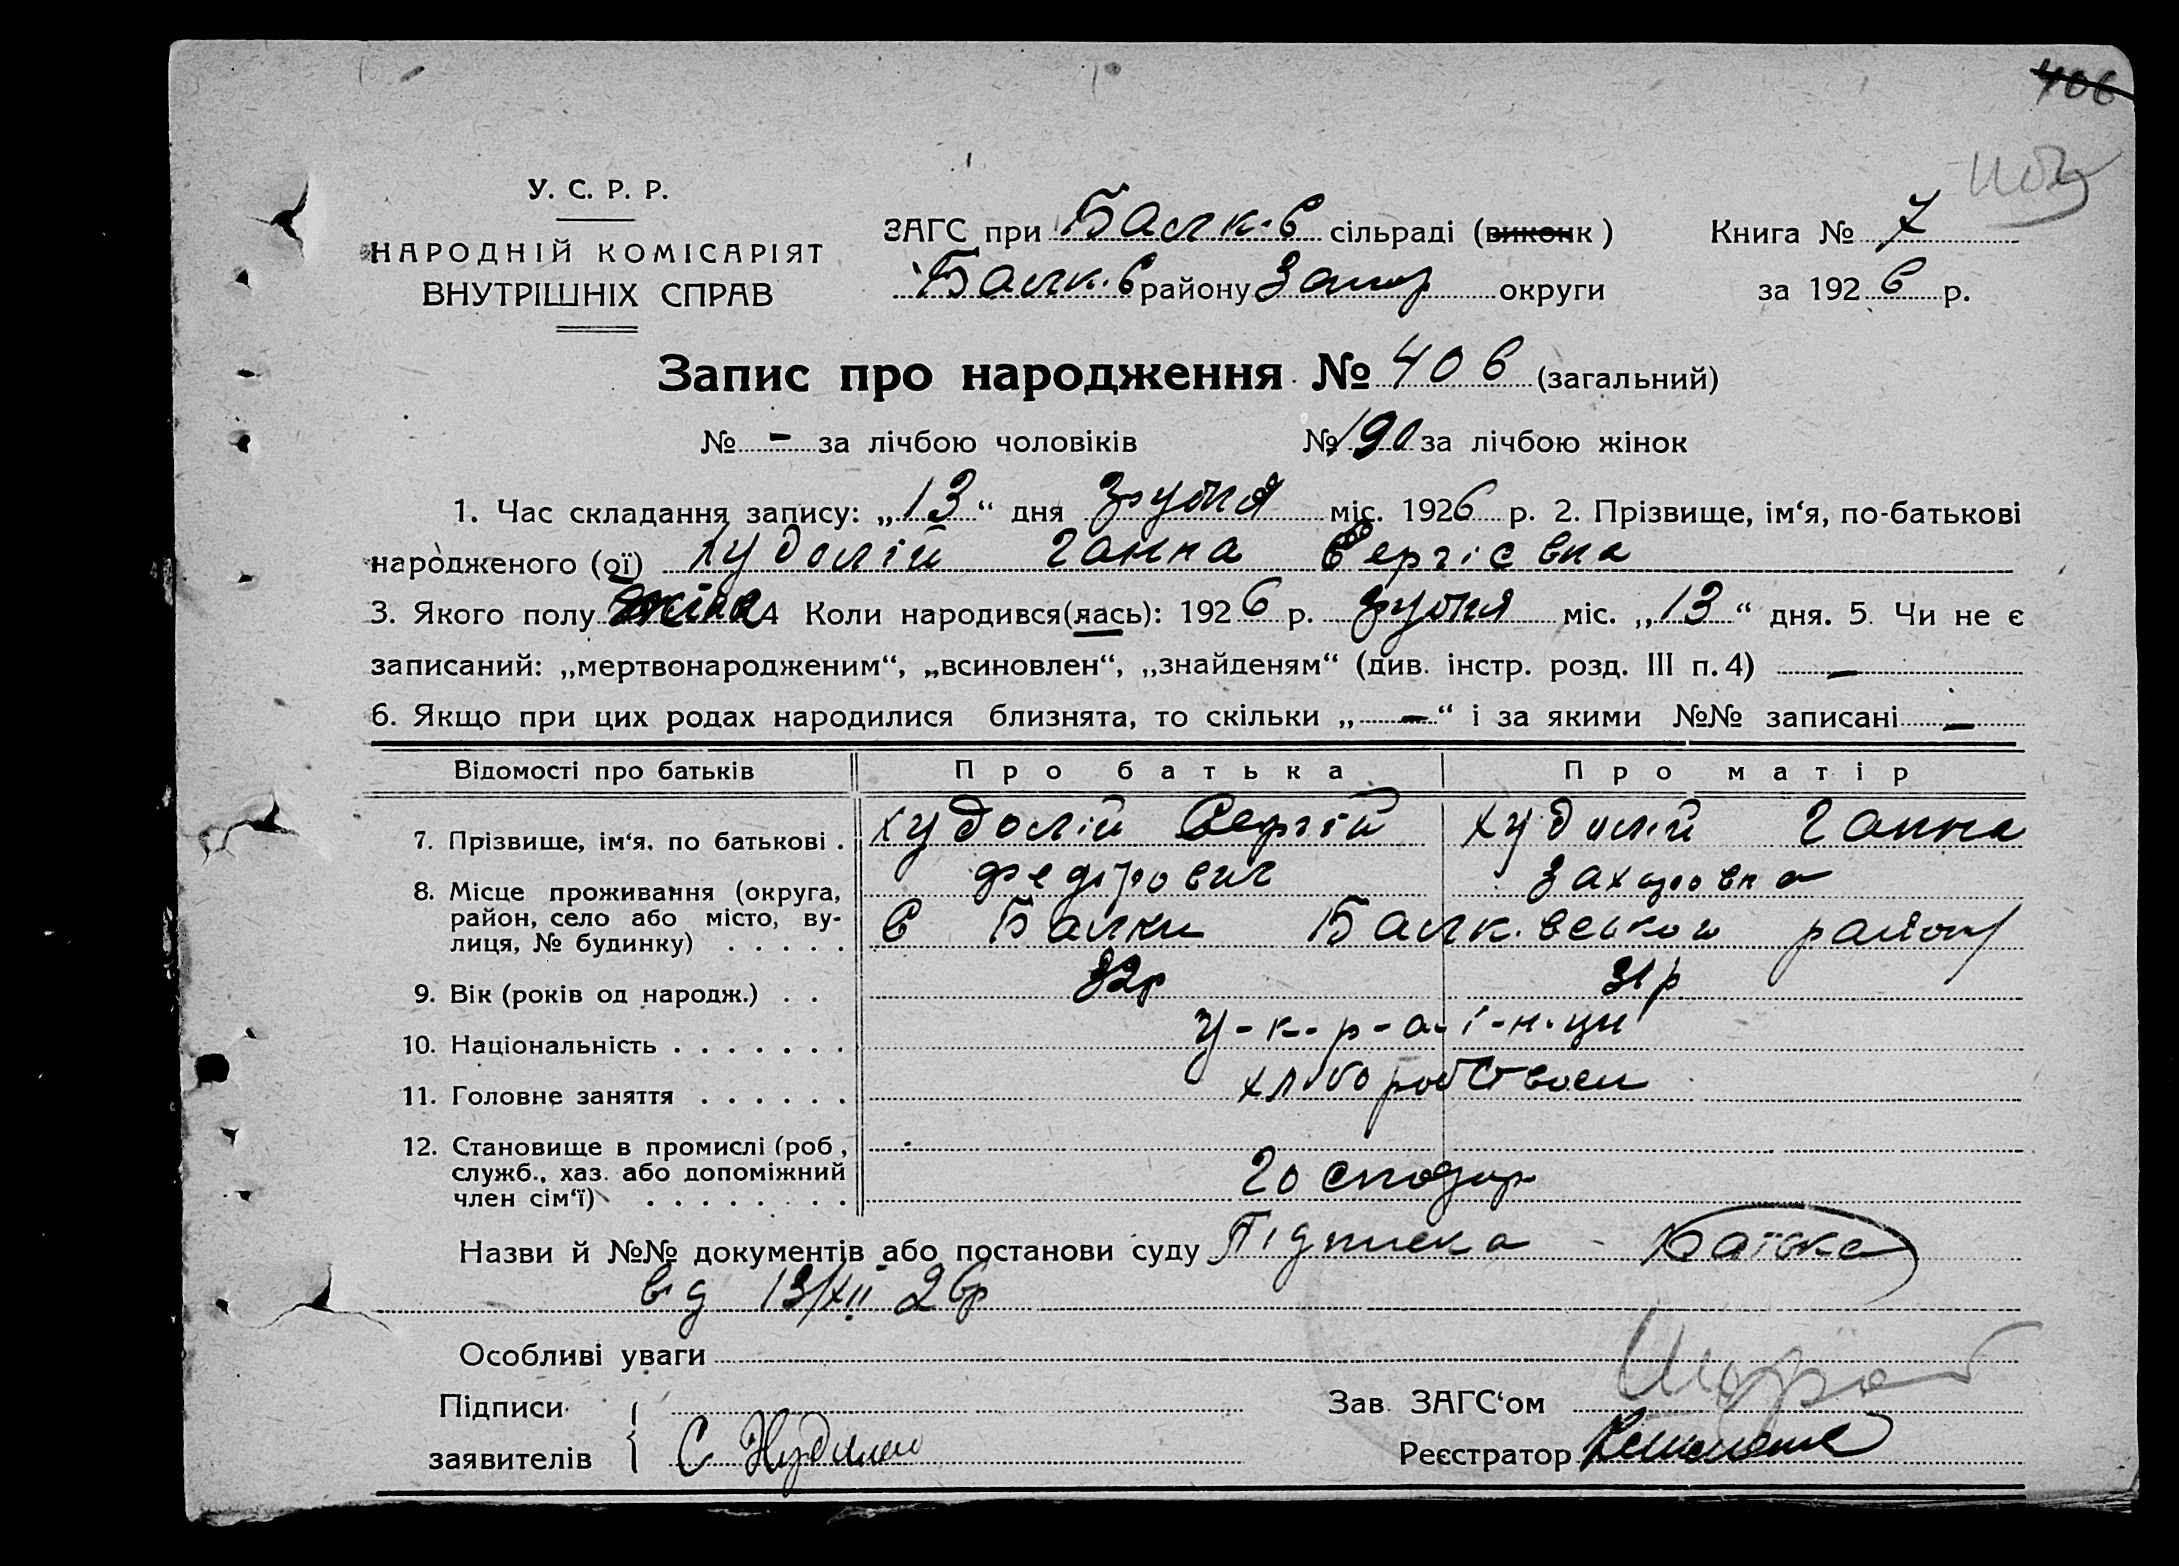 406
У. С. Р. Р.
НАРОДНІЙ КОМІСАРІЯТ
ВНУТРІШНІХ СПРАВ
ЗАГС при Балк-в сільраді (виконк)
Балк.в району Запор округи
Книга № 7
за 1926 р.
Запис про народження № 406 (загальний)
№ - за лічбою чоловіків № 190 за лічбою жінок
1. Час складання запису: „13“ дня грудня міс. 1926 р. 2. Прізвище, ім‘я, по-батькові
народженого (ої) Худолій Ганна Сергієвна
3. Якого полу жіноч 4 Коли народився(лась): 1926 р. грудня міс. „13“ дня. 5. Чи не є
записаний: „мертвонародженим“, „всиновлен“, „знайденям“ (див. інстр. розд. III п. 4) —
6. Якщо при цих родах народилися близнята, то скільки „—“ і за якими №№ записані —
Відомості про батьків Про батька Про матір
7. Прізвище, ім‘я, по батькові . Худолій Сергій Худолій Ганна
Федорович Захаровна
8. Місце проживання (округа,
район, село або місто, ву-
лиця, № будинку) . . . . . С Балки Балк.вської району
9. Вік (років од народж.) . . 32р 31р
10. Національність . . . . . . . у-к-р-а-ї-н-ци
11. Головне заняття . . . . . . хліборобством
12. Становище в промислі (роб,
служб., хаз. або допоміжний
член сім‘ї) . . . . . . . . господар
Назви й №№ документів або постанови суду Підписка - Батька
від 13/XII 26р
Особливі уваги
Підписи
заявителів
С Худолей
Зав ЗАГС‘ом
Реєстратор